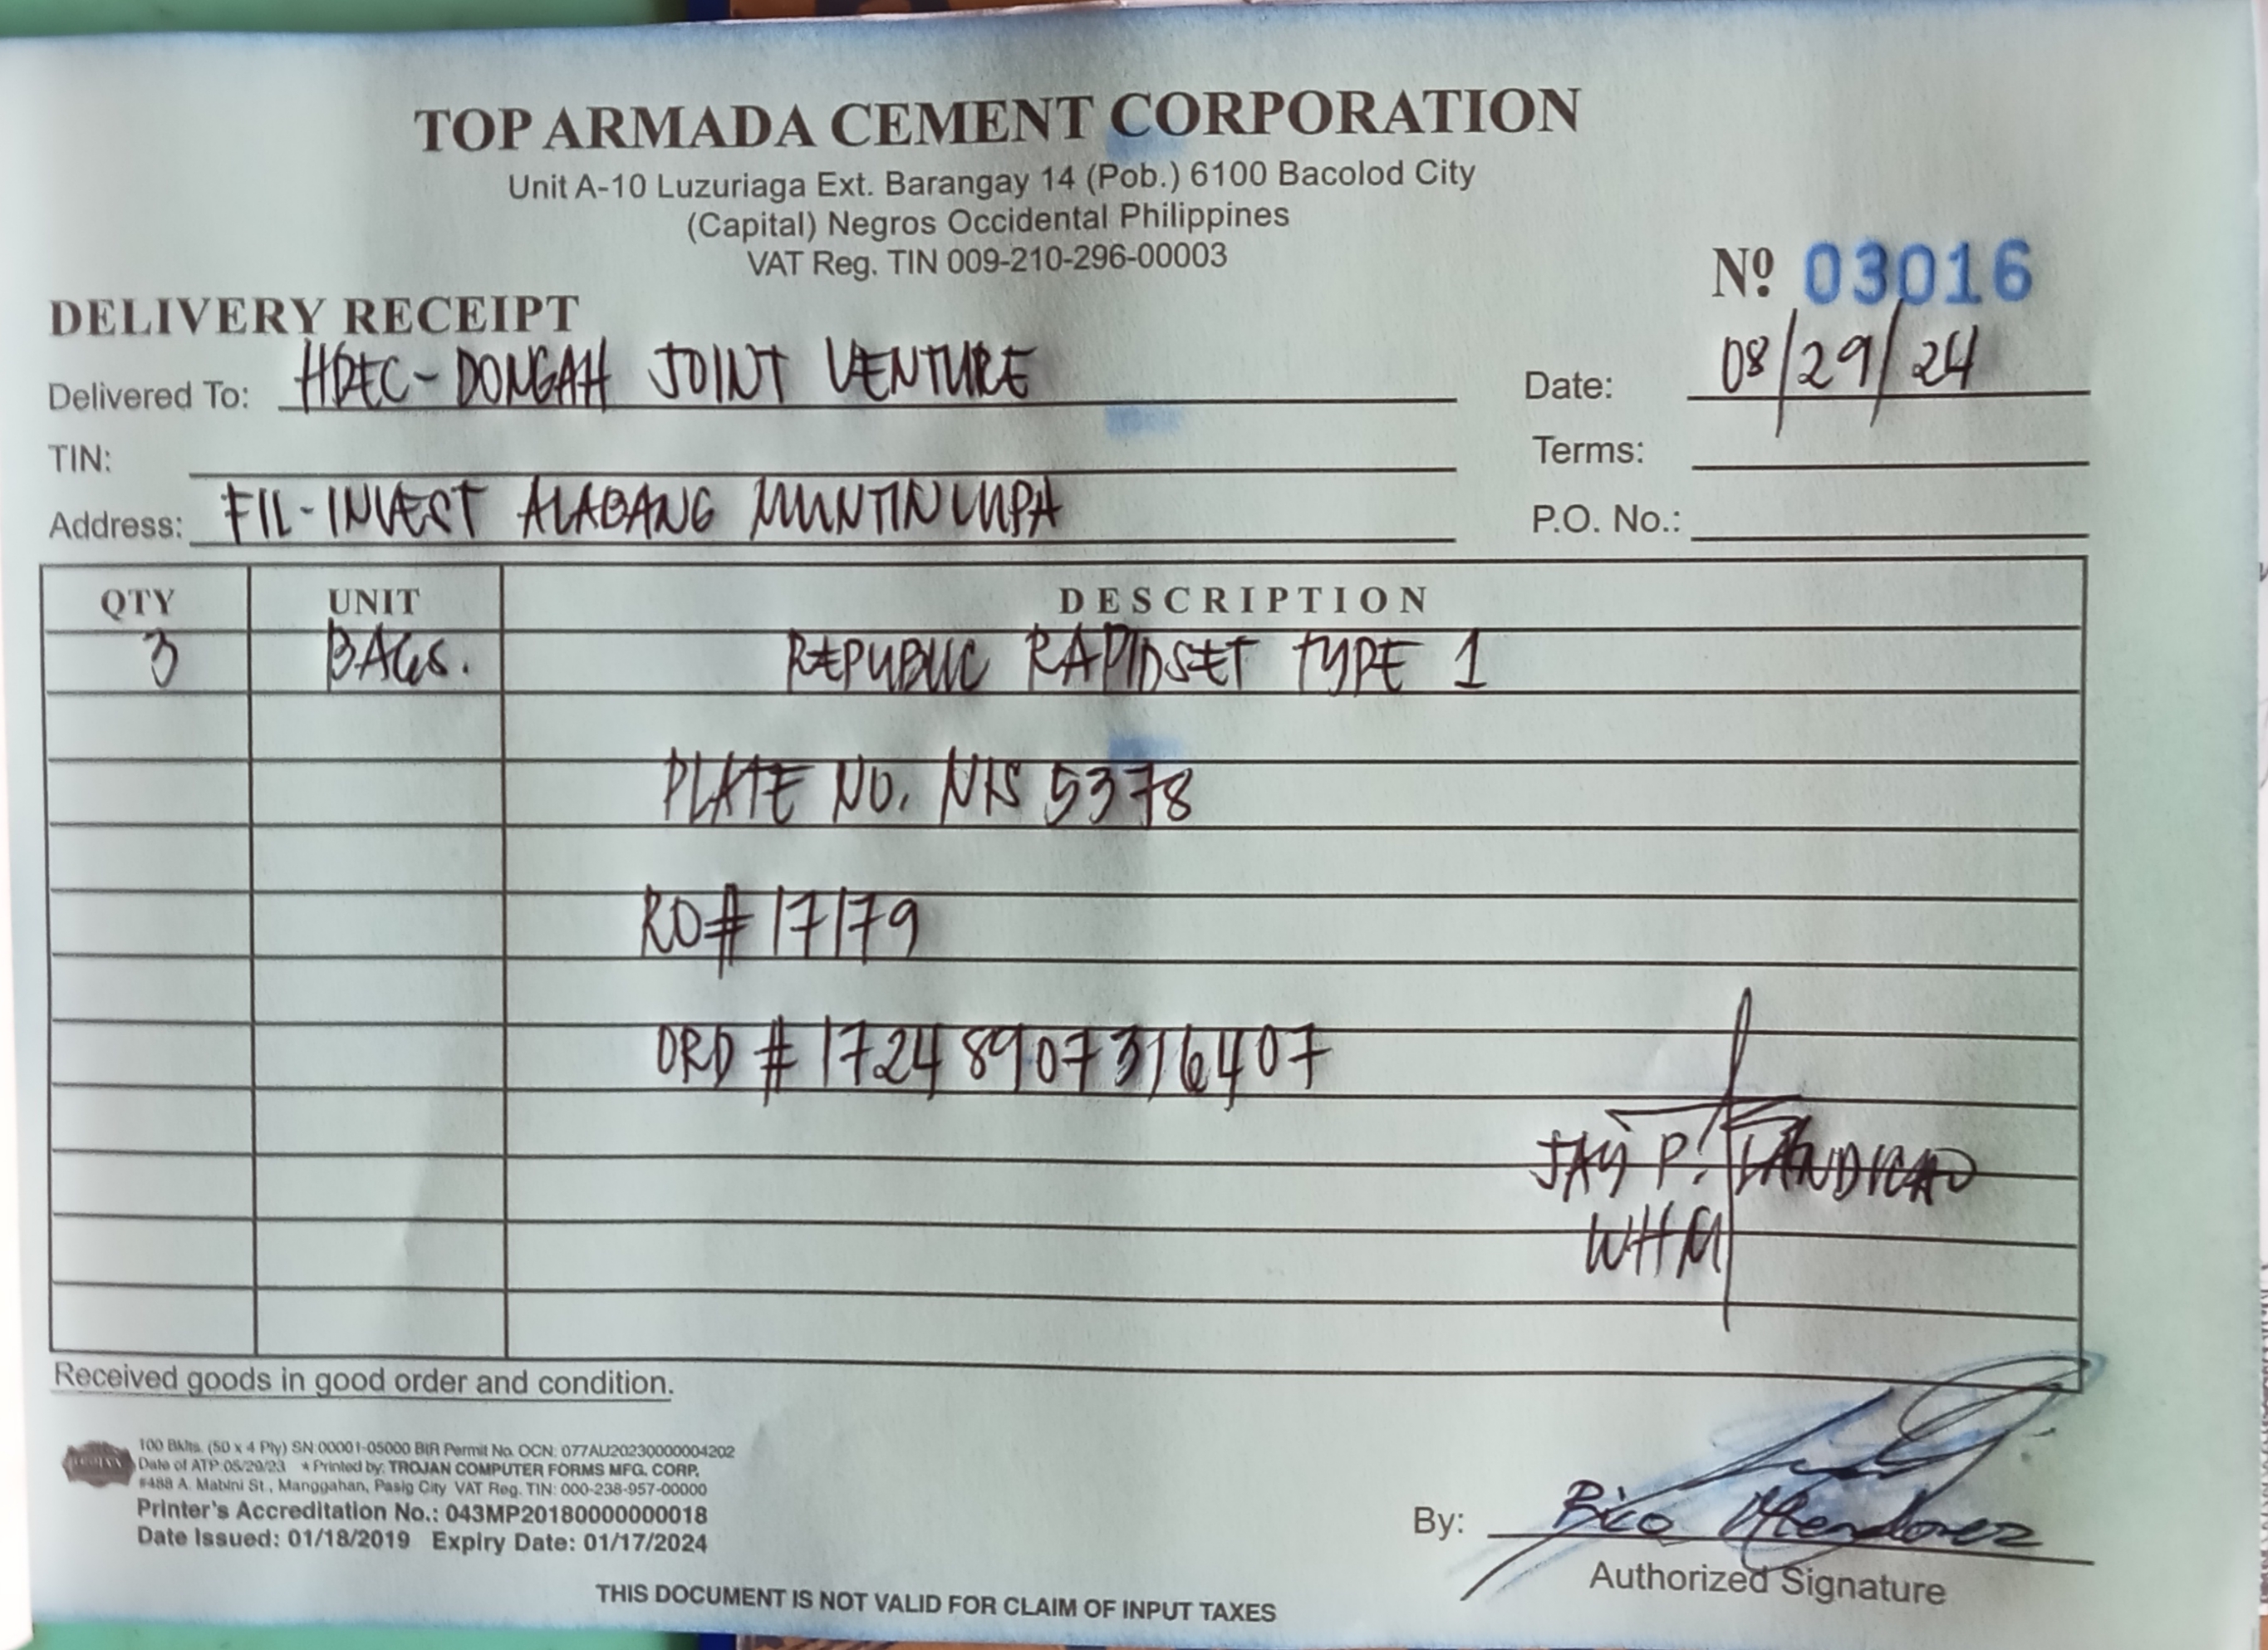 TOP ARMADA CEMENT CORPORATION
Unit A-10 Luzuriaga Ext. Barangay 14 (Pob.) 6100 Bacolod City
(Capital) Negros Occidental Philippines
VAT Reg. TIN 009-210-296-00003
Nº 03016
DELIVERY RECEIPT
Delivered To: HDEC-DONGAH JOINT VENTURE
Date: 08/29/24
TIN:
Terms:
Address: FIL-INVEST ALABANG MUNTINLUPA
P.O. No.:
QTY UNIT DESCRIPTION
3 BAGS. REPUBLIC RAPIDSET TYPE 1
PLATE NO. NIS 5378
RO# 17179
ORD # 17248907316407
JAY P. LANDICHO
WHM
Received goods in good order and condition.
100 Bklts. (50 x 4 Ply) SN:00001-05000 BIR Permit No. OCN: 077AU20230000004202
Date of ATP:05/29/23 * Printed by: TROJAN COMPUTER FORMS MFG. CORP.
#488 A. Mabini St., Manggahan, Pasig City VAT Reg. TIN: 000-238-957-00000
Printer's Accreditation No.: 043MP20180000000018
Date Issued: 01/18/2019 Expiry Date: 01/17/2024
By: Rico Mendoza
Authorized Signature
THIS DOCUMENT IS NOT VALID FOR CLAIM OF INPUT TAXES